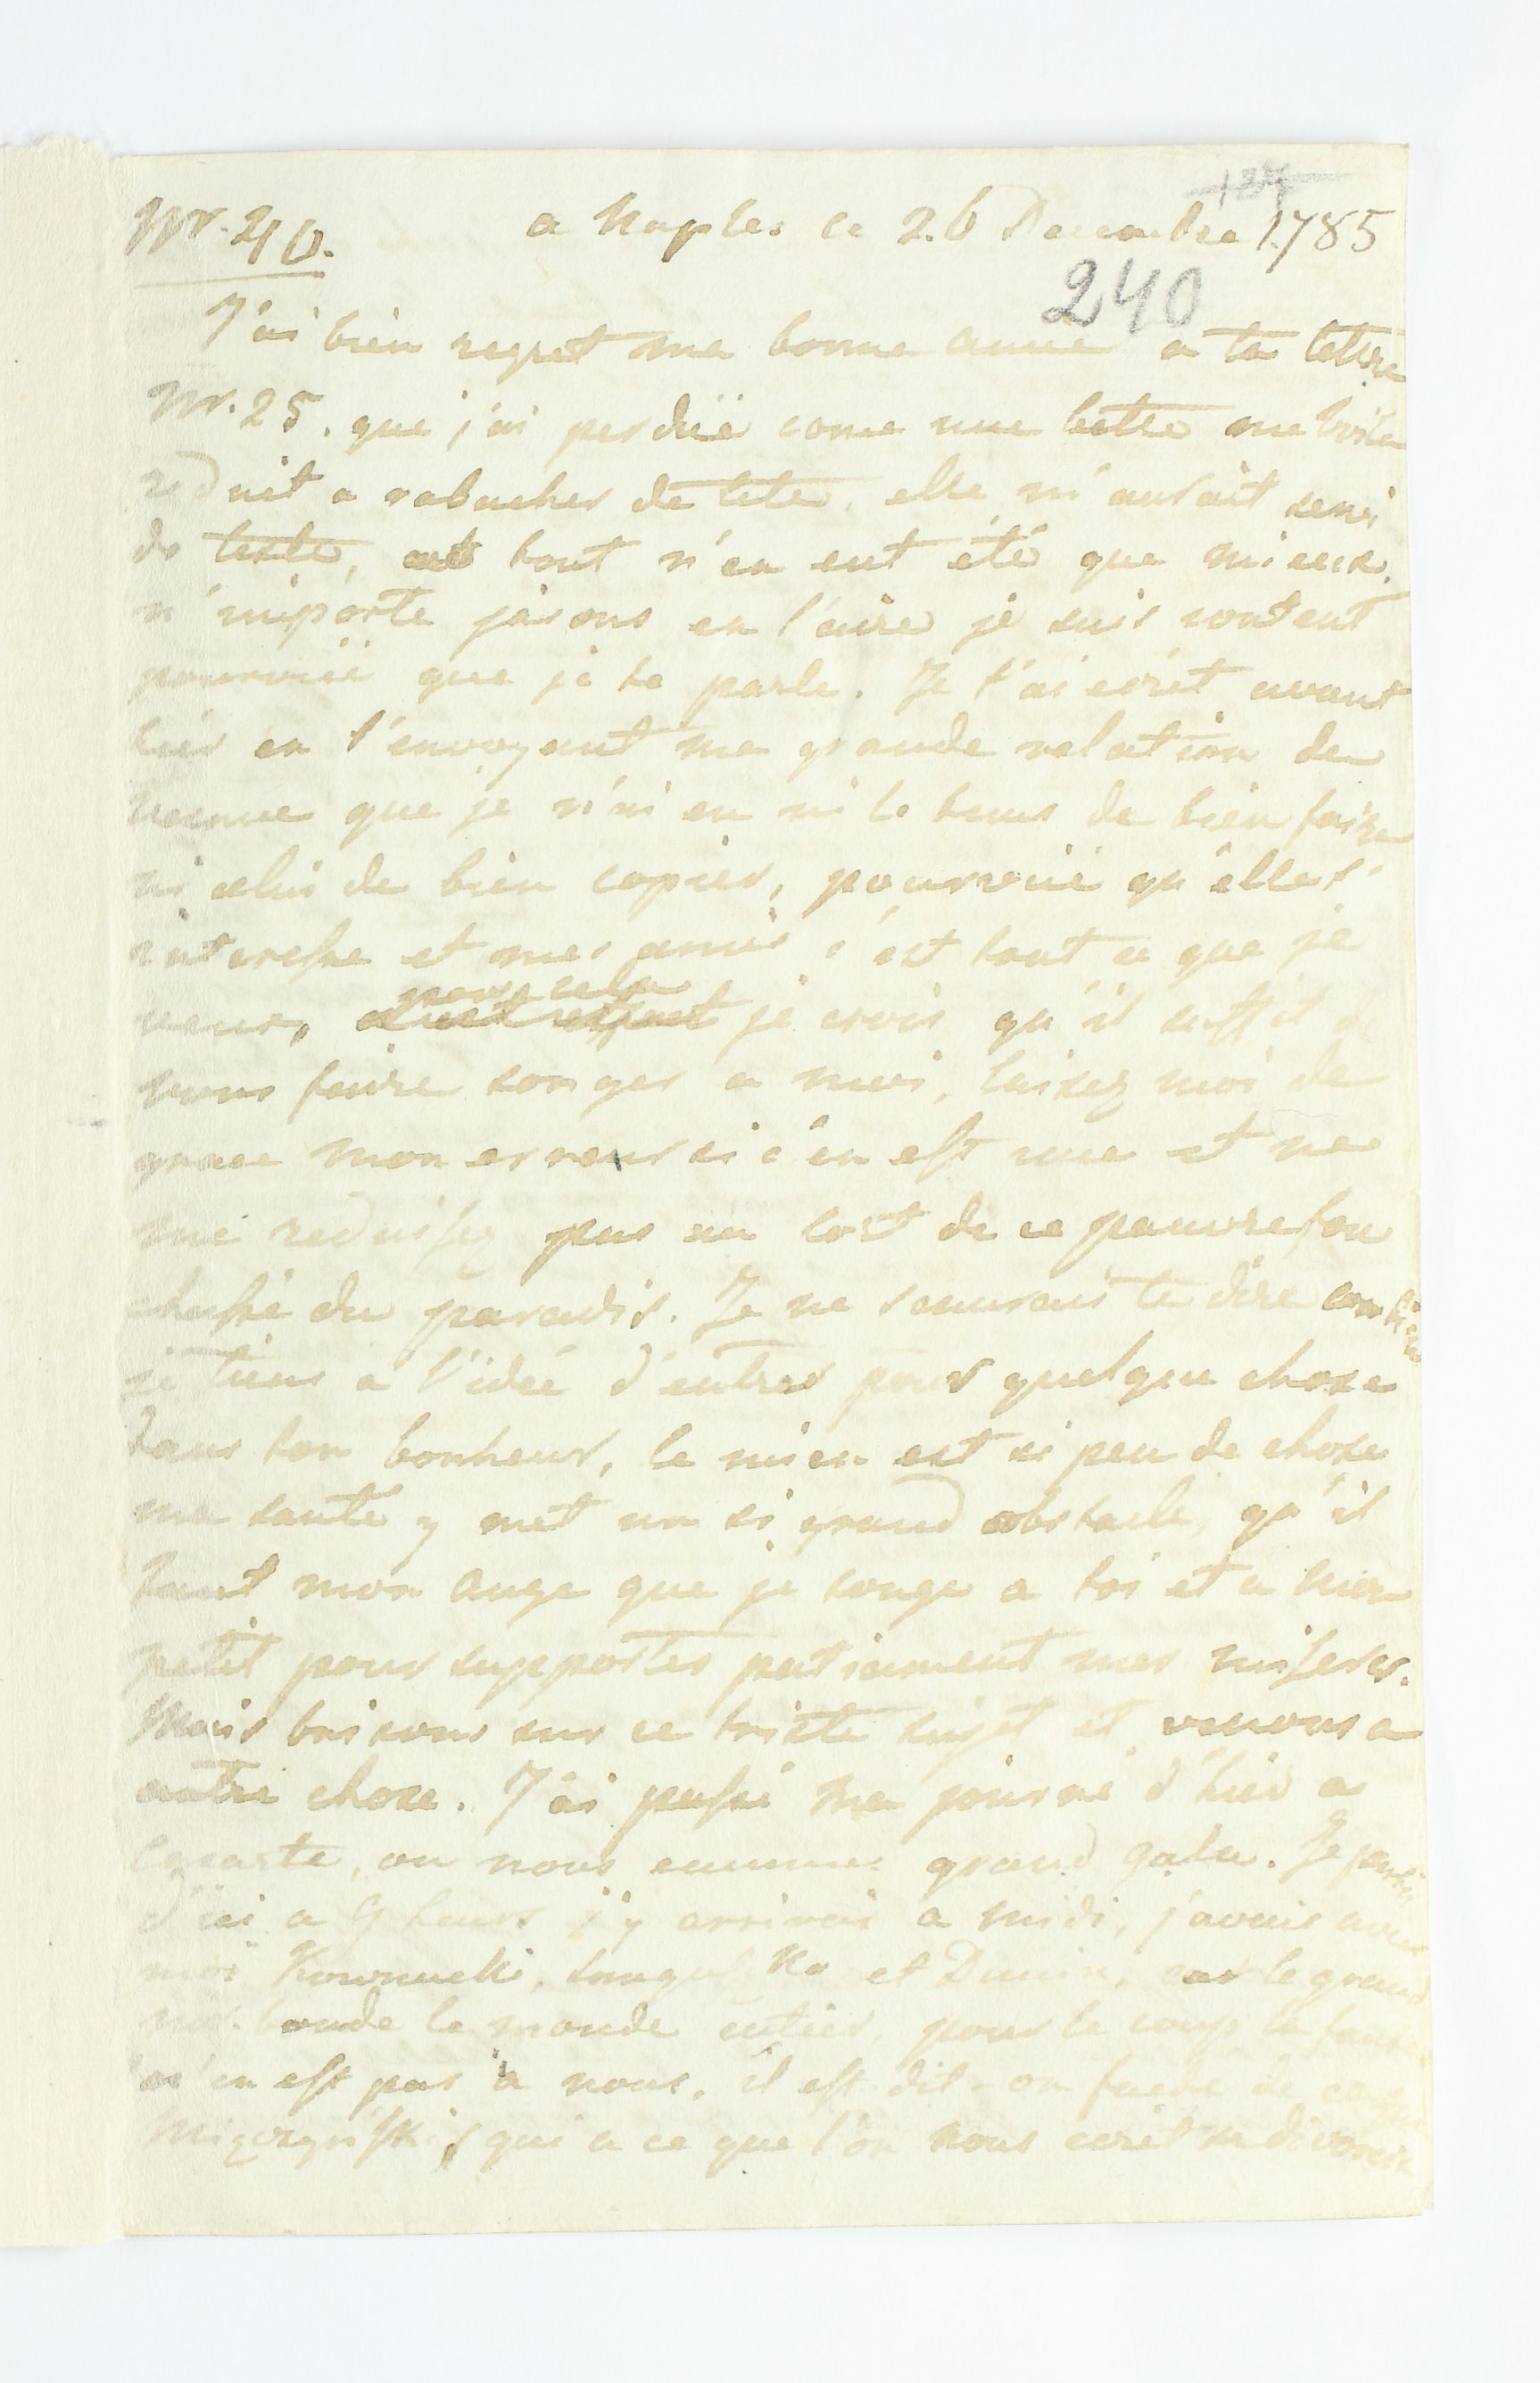 Nr. 40. a Naples ce 26 Decembre 1785
127
240
J'ai bien regret ma bonne amie a ta lettre
Nr. 25. que j'ai perdüe come une bette me voila
reduit a rabacher de tete, elle m'aurait servi
de texte, et tout n'en eut été que mieux.
n'importe jasons en l'aire je suis content
pourvüe que je te parle. Je t'ai ecrit avant
hier en t'envoyant ma grande relation de
que je n'ai eu ni le tems de bien faire
ni celui de bien copier, pourvüe qu'elle t'
interesse et mes amis c'est tout ce que je
veux, pour cela je crois qu'il suffit de
vous faire songer a moi, laisez moi de
grace mon erreur si c'en est une et ne
me reduisez pas au sort de ce pauvre fou
chassé du paradis. Je ne saurais te dire combien
je tiens a l'idée d'entrer pour quelque chose
dans ton bonheur, le mien est si peu de chose
ma santé y met un si grand obstacle, qu'il
faut mon ange que je songe a toi et a mon
petit pour supporter patiament mes miseres.
Mais brisons sur ce triste sujet et venons a
autre chose. J'ai passé ma journé d'hier a
Caserte, ou nous eummes grand gala. Je partis
d'ici a 9 heures j'y arrivai a midi, j'avais avec
moi Kownacki, et Dunin, car le grand
boude le monde entier, pour le coup la faute
n'en est pas a nous, il est dit-on faché de ce que
qui a ce que l'on nous ecrit se divorce